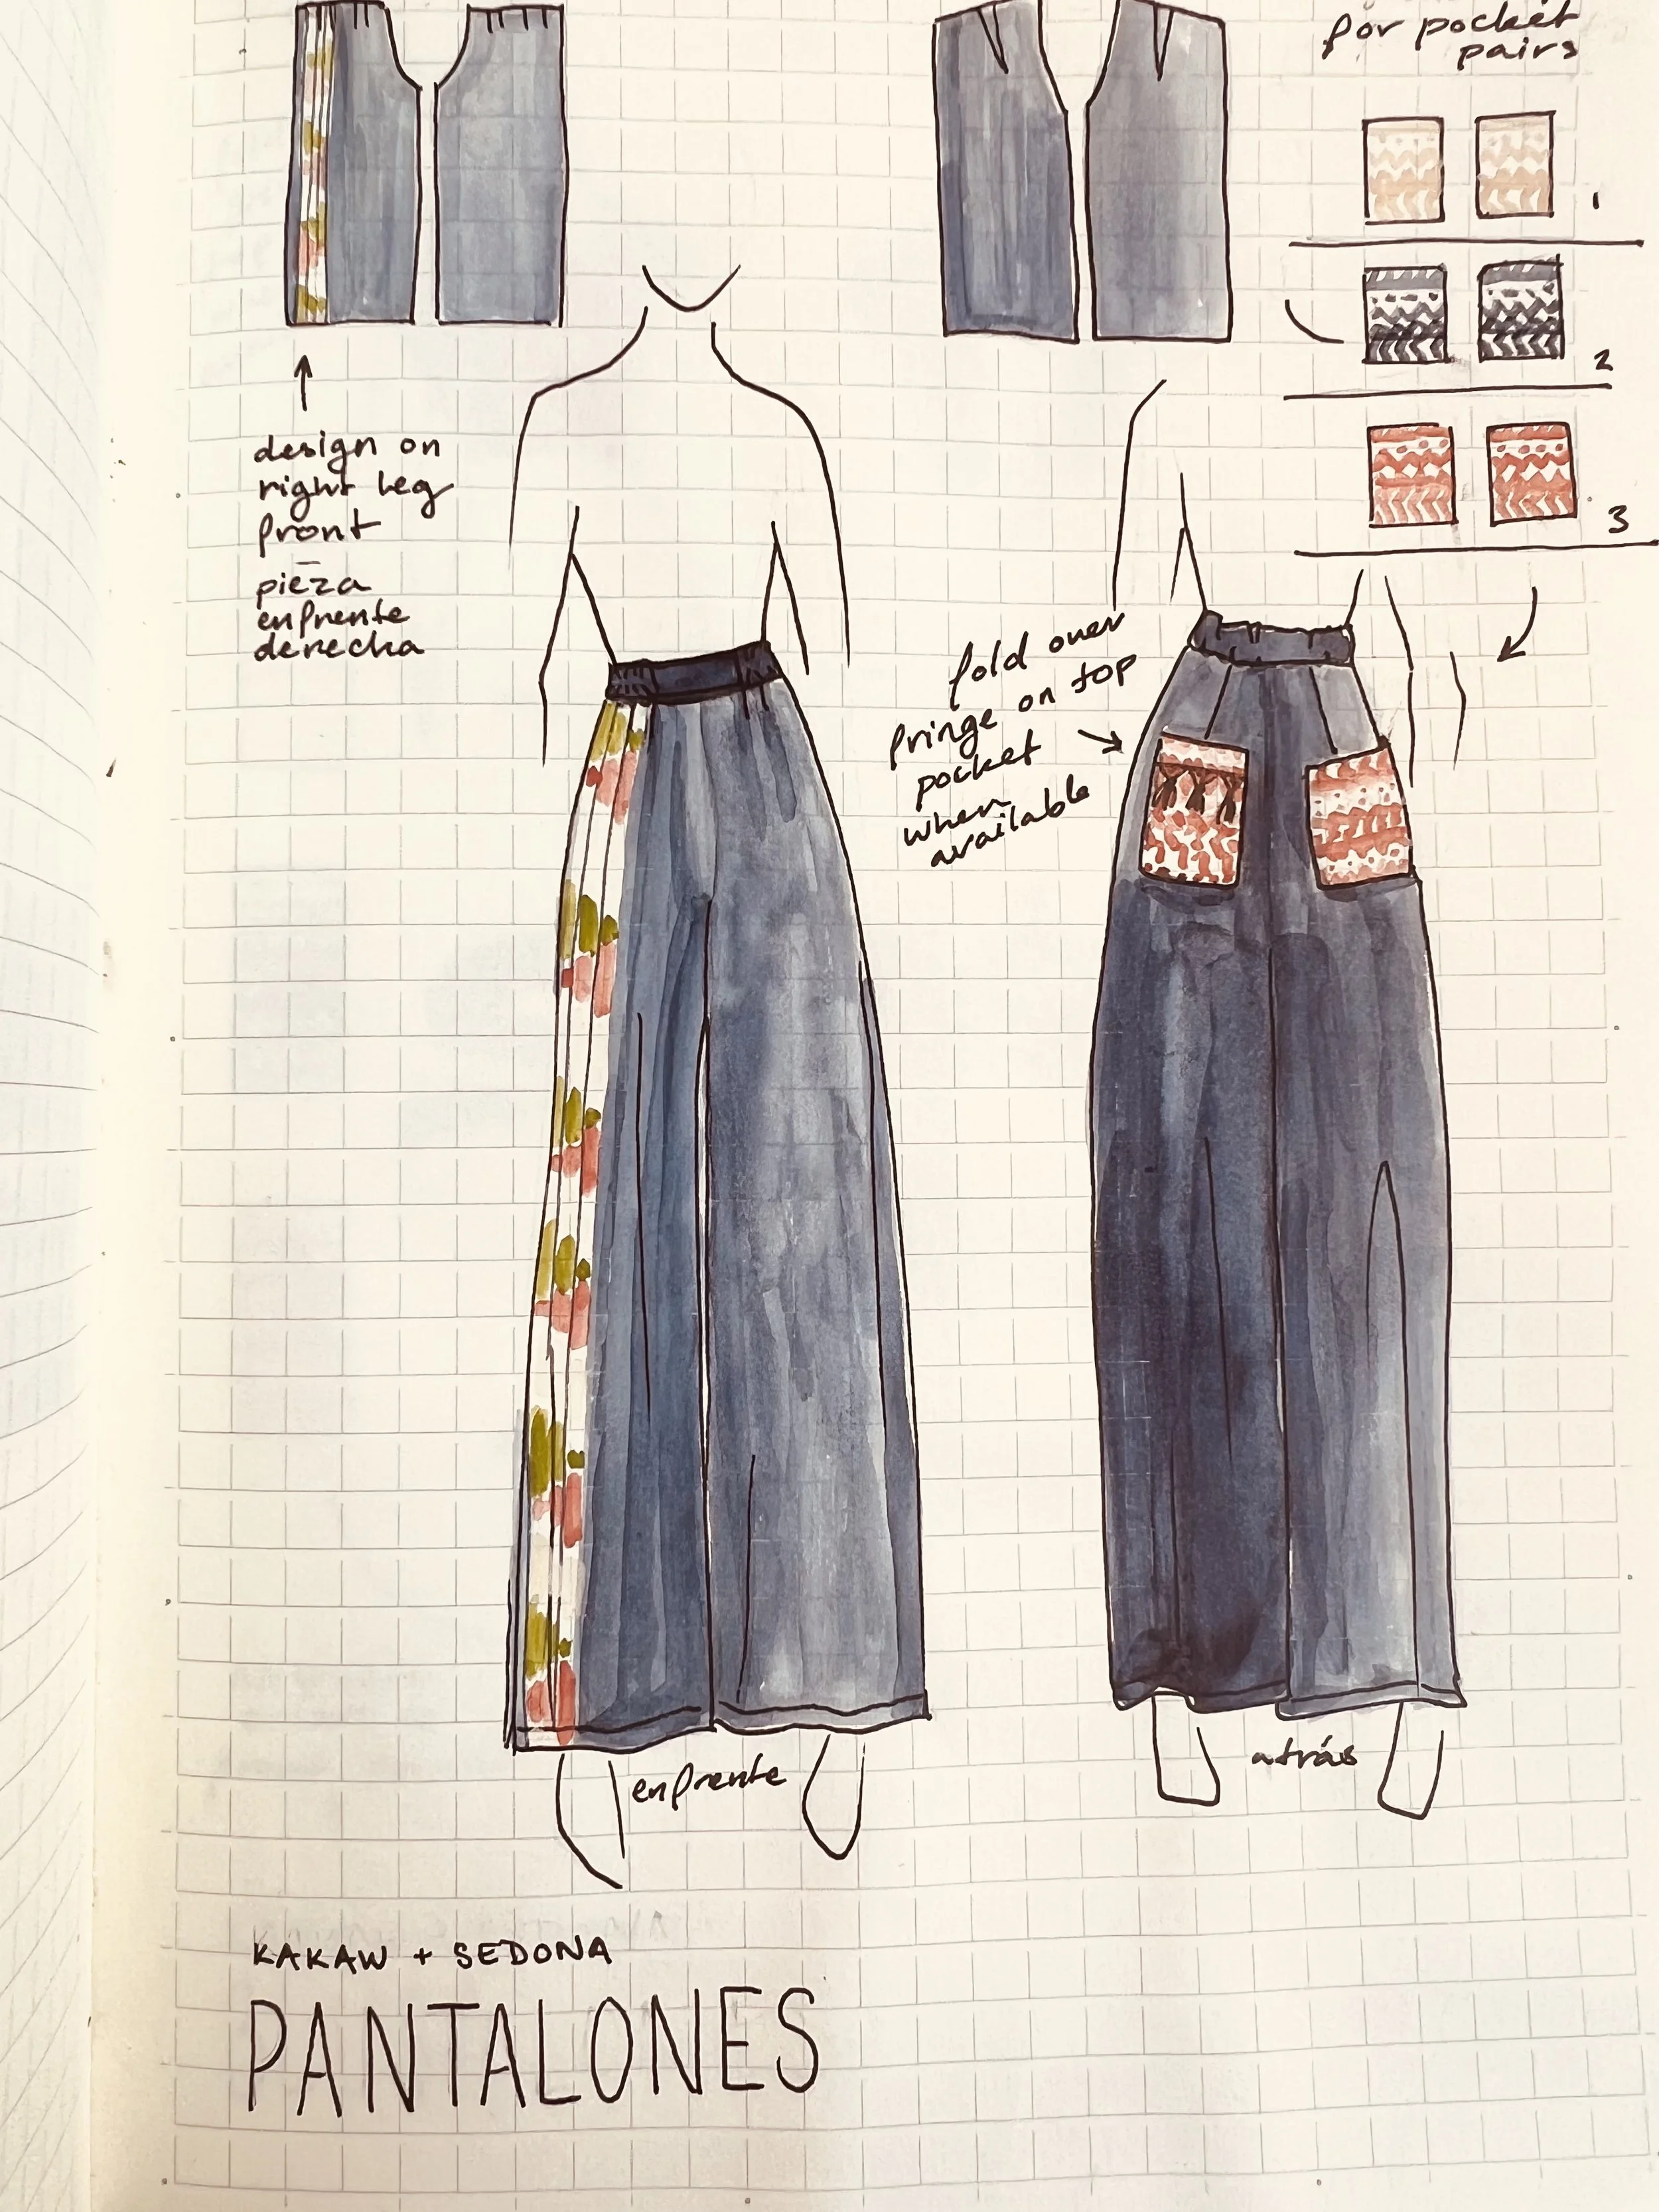 for pocket
pairs
1
2
3
design on
right leg
front
pieza
enfrente
derecha
fold over
fringe on top
pocket
when
available
enfrente
atrás
KAKAW + SEDONA
PANTALONES